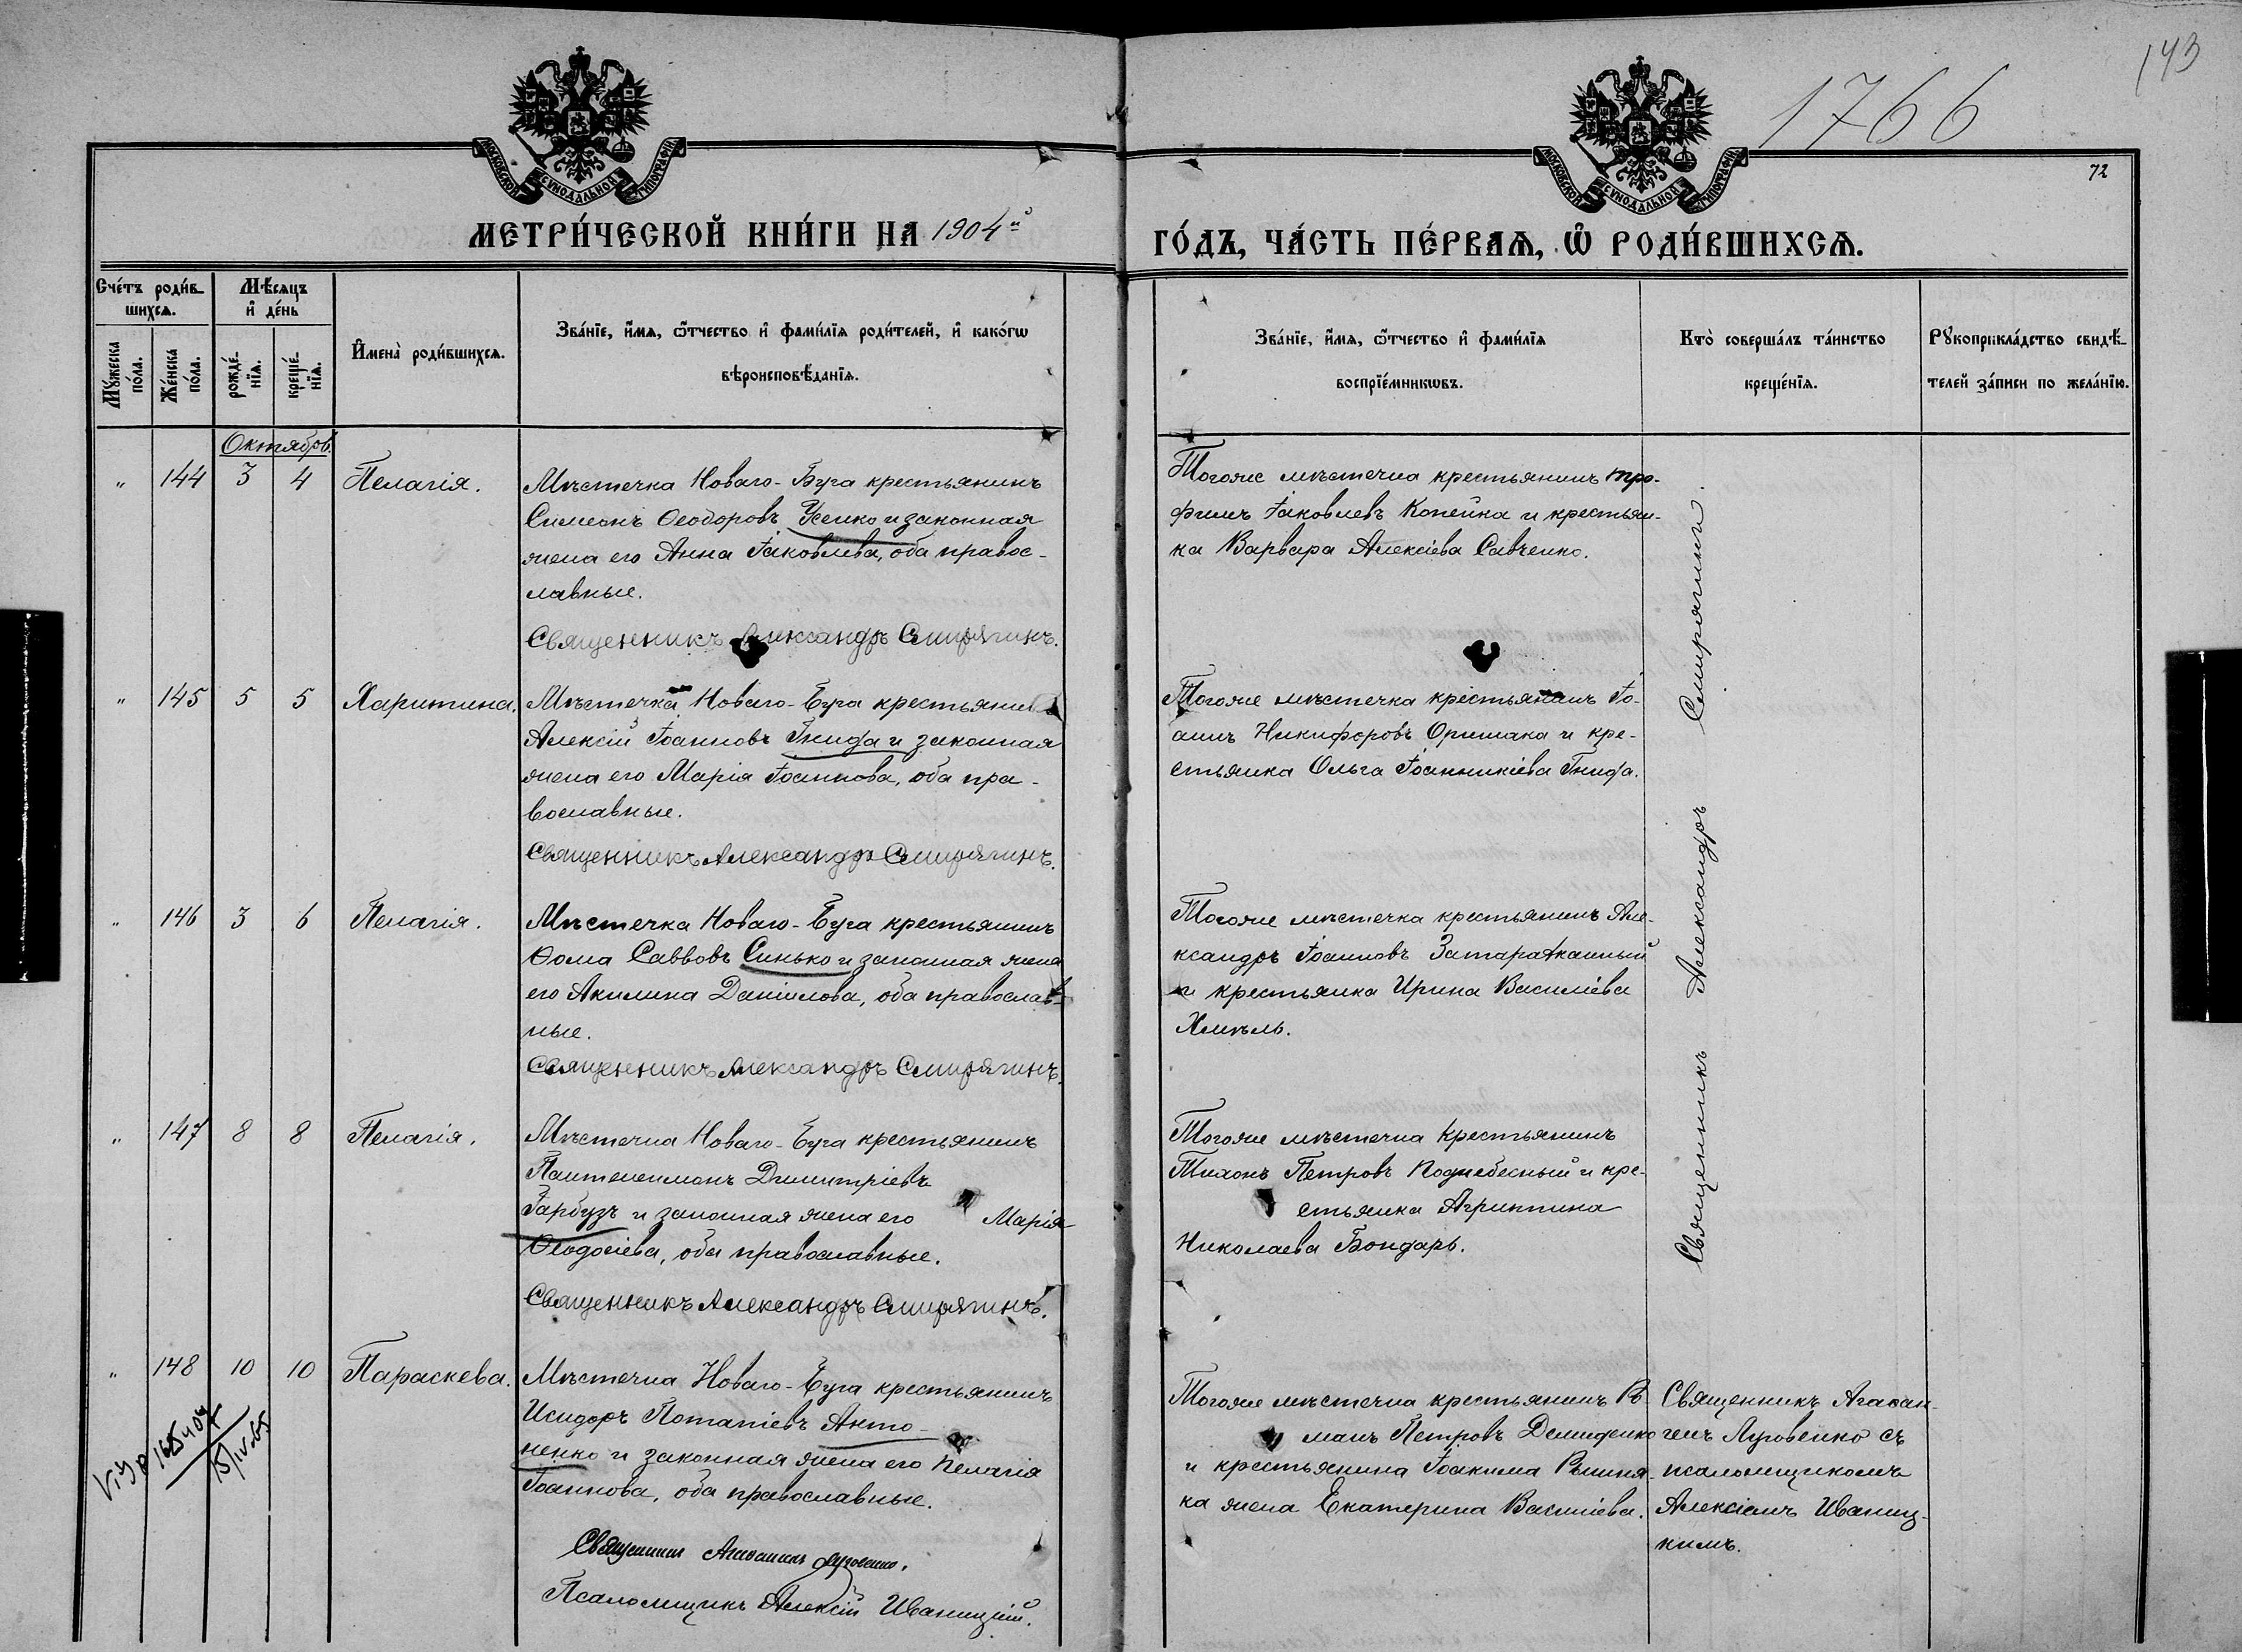 143
1766
72
МОСКОВСКОЙ СѴНОДАЛЬНОЙ ТИПОГРАФІИ
МОСКОВСКОЙ СѴНОДАЛЬНОЙ ТИПОГРАФІИ
МЕТРИ́ЧЕСКОЙ КНИ́ГИ НА 1904й
ГО́ДЪ, ЧА́СТЬ ПЕ́РВАѦ, Ѽ РОДИ́ВШИХСѦ.
Сче́тъ роди́в-
шихсѧ.
Мѣ́сѧцъ
и҆ де́нь
Мꙋ́жеска
по́ла.
Же́нска
по́ла.
рожде́-
нїѧ.
креще́-
нїѧ.
И҆мена̀ роди́вшихсѧ.
Зва́нїе, и҆́мѧ, ѻ҆́тчество и҆ фами́лїѧ роди́телей, и҆ како́гѡ
вѣроисповѣ́данїѧ.
Зва́нїе, и҆́мѧ, ѻ҆́тчество и҆ фами́лїѧ
воспрїе́мникѡвъ.
Кто̀ соверша́лъ та́инство
креще́нїѧ.
Рꙋкоприкла́дство свидѣ́-
телей за́писи по жела́нїю.
Октябрь.
" 144 3 4 Пелагія.
Мѣстечка Новаго-Буга крестьянинъ
Симеонъ Ѳеодоровъ Усенко и законная
жена его Анна Іаковлева, оба правос-
лавные.
Священникъ Александръ Смирягинъ.
Тогоже мѣстечка крестьянинъ Тро-
фимъ Іаковлевъ Копейка и крестьян-
ка Варвара Алексіева Савченко.
" 145 5 5 Харитина.
Мѣстечка Новаго-Буга крестьянинъ
Алексій Іоанновъ Гнида и законная
жена его Марія Іоаннова, оба пра-
вославные.
Священникъ Александръ Смирягинъ.
Тогоже мѣстечка крестьянинъ Іо-
аннъ Никифоровъ Оришака и кре-
стьянка Ольга Іоанникіева Гнида.
" 146 3 6 Пелагія.
Мѣстечка Новаго-Буга крестьянинъ
Ѳома Саввовъ Синько и законная жена
его Акилина Даніилова, оба православ-
ные.
Священникъ Александръ Смирягинъ.
Тогоже мѣстечка крестьянинъ Але-
ксандръ Іоанновъ Затараканный
и крестьянка Ирина Василіева
Хмѣль.
" 147 8 8 Пелагія.
Мѣстечка Новаго-Буга крестьянинъ
Пантелеимонъ Димитріевъ
Гарбузъ и законная жена его Марія
Ѳеодосіева, оба православные.
Священникъ Александръ Смирягинъ.
Тогоже мѣстечка крестьянинъ
Тихонъ Петровъ Поднебесный и кре-
стьянка Агриппина
Николаева Бондарь.
Священникъ Александръ Смирягинъ.
" 148 10 10 Параскева.
Мѣстечка Новаго-Буга крестьянинъ
Исидоръ Потапіевъ Анто-
ненко и законная жена его Пелагія
Іоаннова, оба православные.
Священникъ Агаѳангелъ Луговенко.
Псаломщикъ Алексій Иваницкій.
Тогоже мѣстечка крестьянинъ Ро-
манъ Петровъ Демиденко
и крестьянина Іоакима
ка жена Екатерина Василіева.
Священникъ Агаѳан-
гелъ Луговенко съ
псаломщикомъ
Алексіемъ Иваниц-
кимъ.